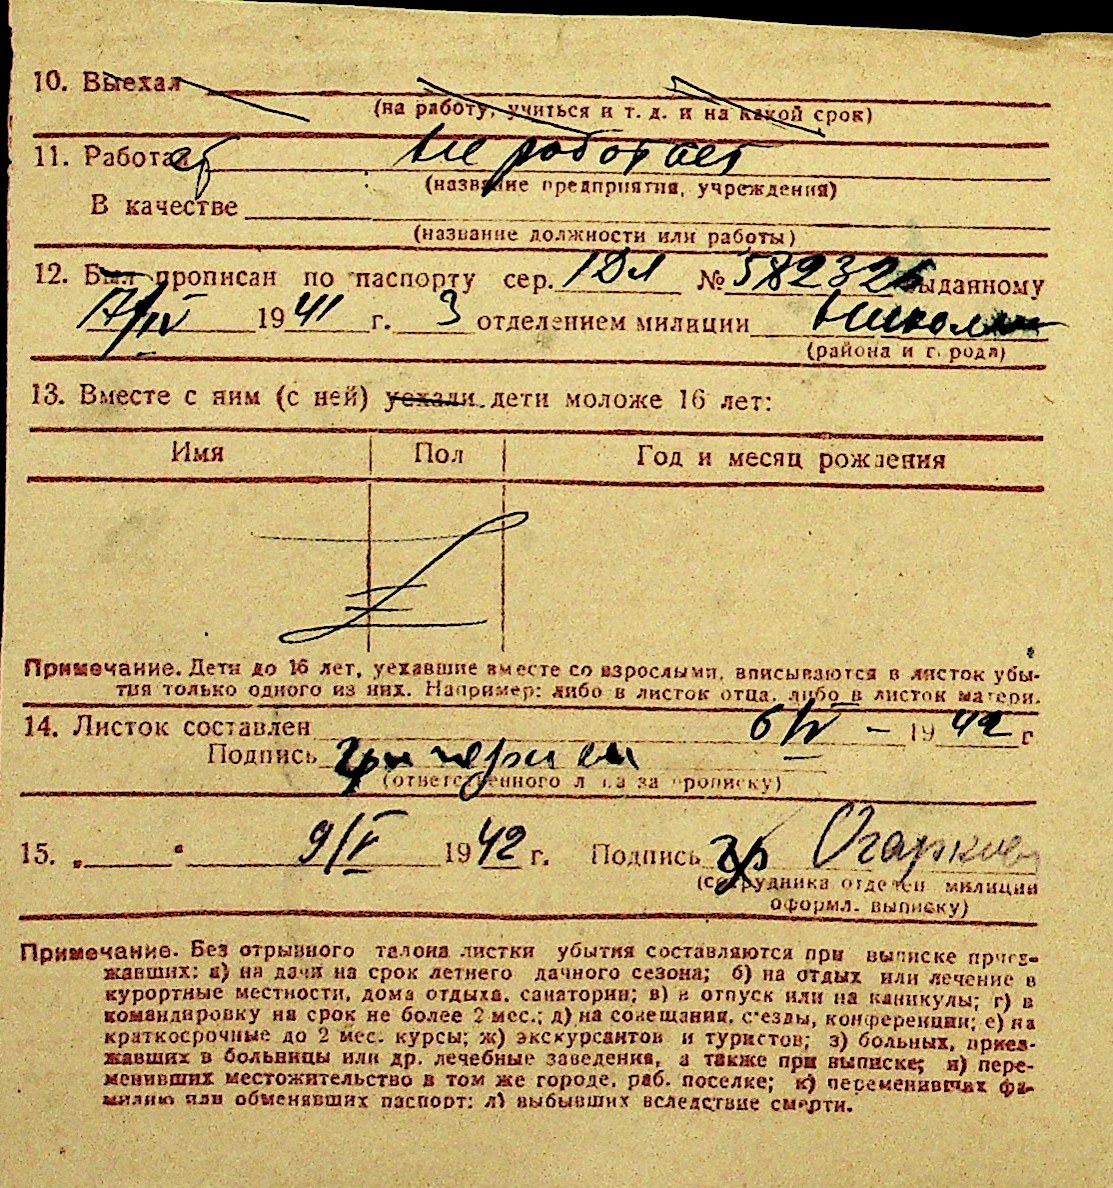 10. Выехал
(на работу, учиться и т. д. и на какой срок)
11. Работает не работает
(название предприятия, учреждения)
В качестве
(название должности или работы)
12. Был прописан по паспорту сер. 1Дл № 582326 выданному
17/IV 1941 г. 3 отделением милиции
(района и города)
13. Вместе с ним (с ней) уехали дети моложе 16 лет:
Имя Пол Год и месяц рождения
Примечание. Дети до 16 лет, уехавшие вместе со взрослыми, вписываются в листок убы-
тия только одного из них. Например: либо в листок отца, либо в листок матери.
14. Листок составлен 6/IV - 1942 г
Подпись
(ответственного лица за прописку)
15. „ " 9/V 1942 г. Подпись
(сотрудника отделен милиции
оформл. выписку)
Примечание. Без отрывного талона листки убытия составляются при выписке приез-
жавших: а) на дачи на срок летнего дачного сезона; б) на отдых или лечение в
курортные местности, дома отдыха, санатории; в) в отпуск или на каникулы; г) в
командировку на срок не более 2 мес.; д) на совещания, съезды, конференции; е) на
краткосрочные до 2 мес. курсы; ж) экскурсантов и туристов; з) больных, приез-
жавших в больницы или др. лечебные заведения, а также при выписке; и) пере-
менивших местожительство в том же городе, раб. поселке; к) переменивших фа-
милию или обменявших паспорт; л) выбывших вследствие смерти.